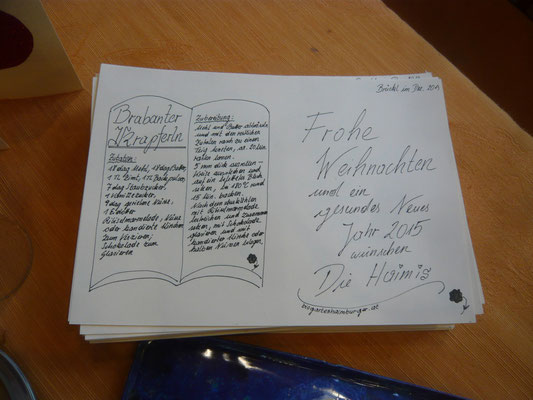 Brabanter
Krapferln
Zutaten:
18 dag Mehl, 18 dag Butter
1 TL Zimt, 1 TL Backpulver
7 dag Staubzucker,
1 Vanillezucker,
9 dag geriebene Nüsse,
1 Eidotter
Ribiselmarmelade, Nüsse
oder kandierte Kirschen
zum Verzieren,
Schokolade zum
Glasieren
Zubereitung:
Mehl und Butter abbröseln
und mit den restlichen
Zutaten rasch zu einem
Teig kneten, ca. 30 Min
rasten lassen.
5 mm dick ausrollen -
Kreise ausstechen und
auf ein befettetes Blech
setzen, bei 180°C und
15 Min. backen.
Nach dem Auskühlen
mit Ribiselmarmelade
bestreichen und zusammen
setzen, mit Schokolade
glasieren und mit
kandierter Kirsche oder
halben Nüssen belegen.
Brückl im Dez. 2014
Frohe
Weihnachten
und ein
gesundes Neues
Jahr 2015
wünschen
Die Haimis
biogartenhaimburger.at